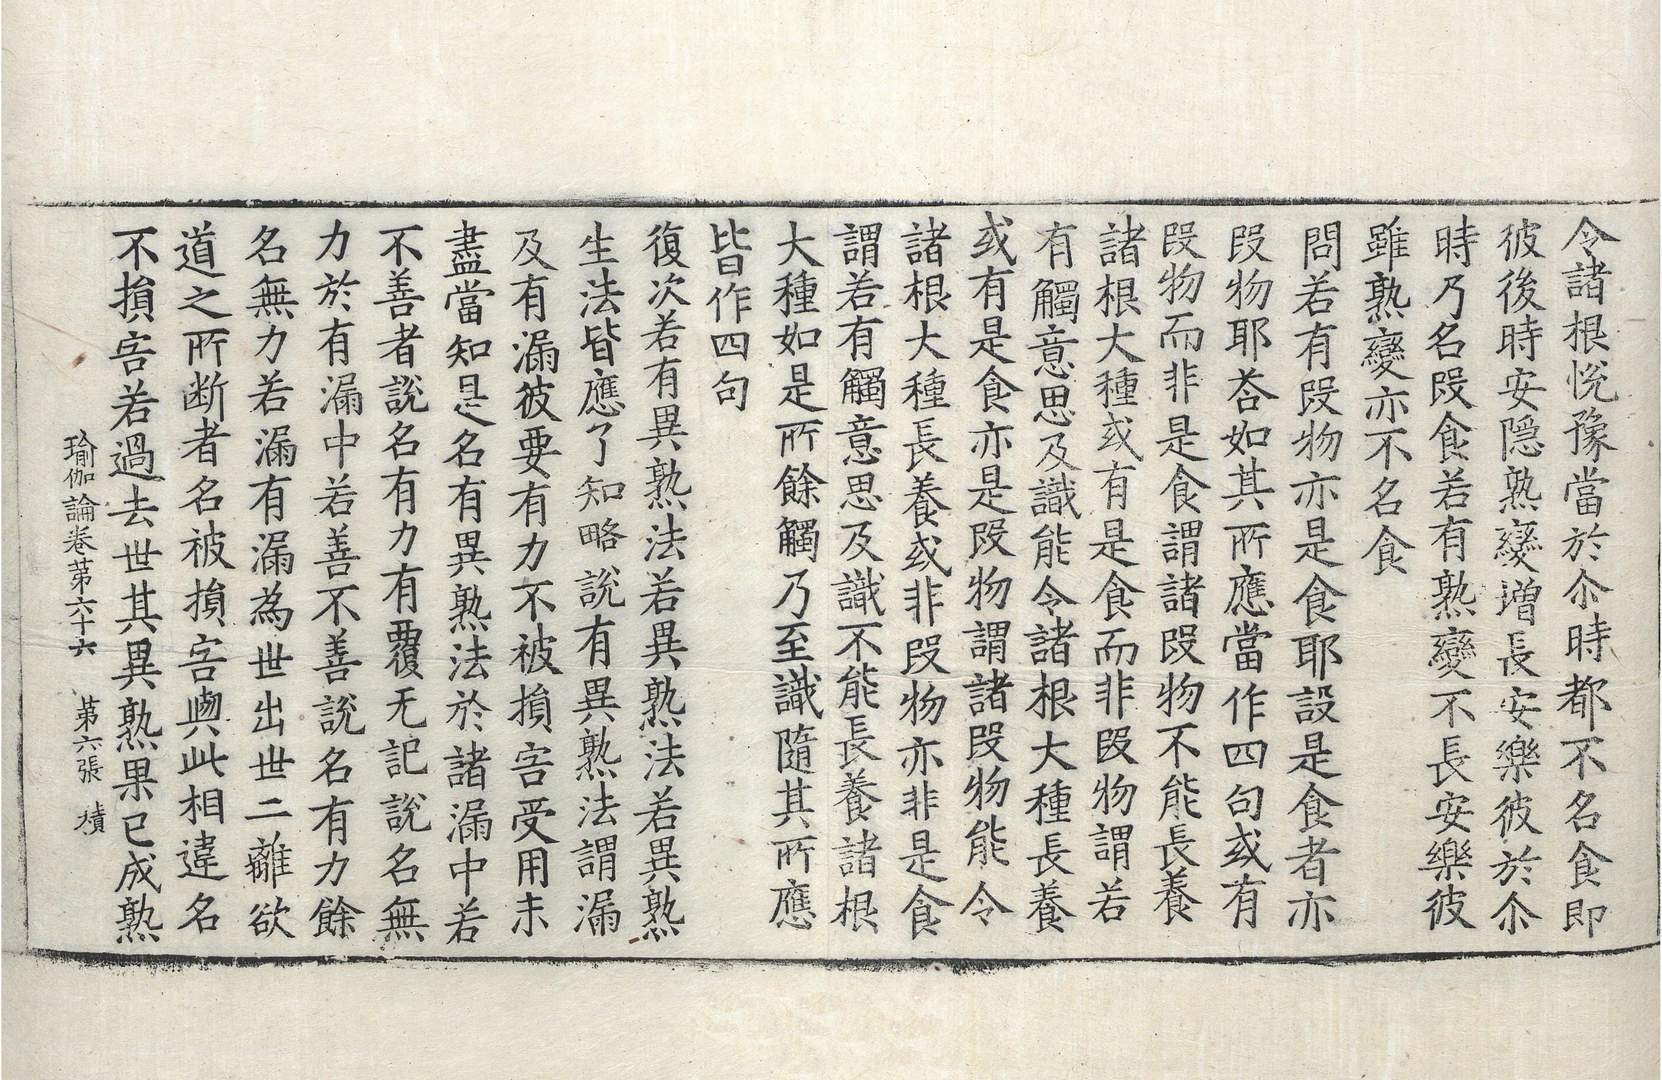 令諸根悅豫當於尒時都不名食即
彼後時安隱熟變增長安樂彼於尒
時乃名段食若有熟變不長安樂彼
雖熟變亦不名食
問若有段物亦是食耶設是食者亦
段物耶荅如其所應當作四句或有
段物而非是食謂諸段物不能長養
諸根大種或有是食而非段物謂若
有觸意思及識能令諸根大種長養
或有是食亦是段物謂諸段物能令
諸根大種長養或非段物亦非是食
謂若有觸意思及識不能長養諸根
大種如是所餘觸乃至識隨其所應
皆作四句
復次若有異熟法若異熟法若異熟
生法皆應了知略說有異熟法謂漏
及有漏彼要有力不被損害受用未
盡當知是名有異熟法於諸漏中若
不善者說名有力有覆无記說名無
力於有漏中若善不善說名有力餘
名無力若漏有漏為世出世二離欲
道之所断者名被損害與此相違名
不損害若過去世其異熟果已成熟
瑜伽論卷第六十六 第六張 積